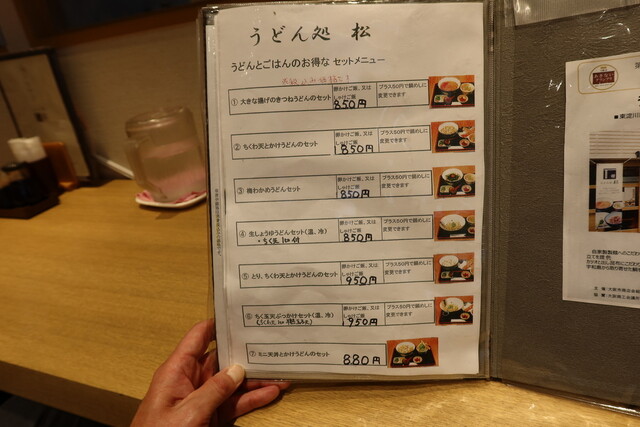 うどん処 松
うどんとごはんのお得な セットメニュー
① 大きな揚げのきつねうどんのセット
卵かけご飯、又は
しゃけご飯
850円
プラス50円で鯛めしに
変更できます
② ちくわ天とかけうどんのセット
卵かけご飯、又は
しゃけご飯
850円
プラス50円で鯛めしに
変更できます
③ 梅わかめうどんセット
卵かけご飯、又は
しゃけご飯
850円
プラス50円で鯛めしに
変更できます
④ 生しょうゆうどんセット(温、冷)
・ちく玉1コ付
卵かけご飯、又は
しゃけご飯
850円
プラス50円で鯛めしに
変更できます
⑤ とり、ちくわ天とかけうどんのセット
卵かけご飯、又は
しゃけご飯
950円
プラス50円で鯛めしに
変更できます
⑥ ちく玉天ぶっかけセット(温、冷)
卵かけご飯、又は
しゃけご飯
950円
プラス50円で鯛めしに
変更できます
⑦ ミニ天丼とかけうどんのセット
880円
東淀川